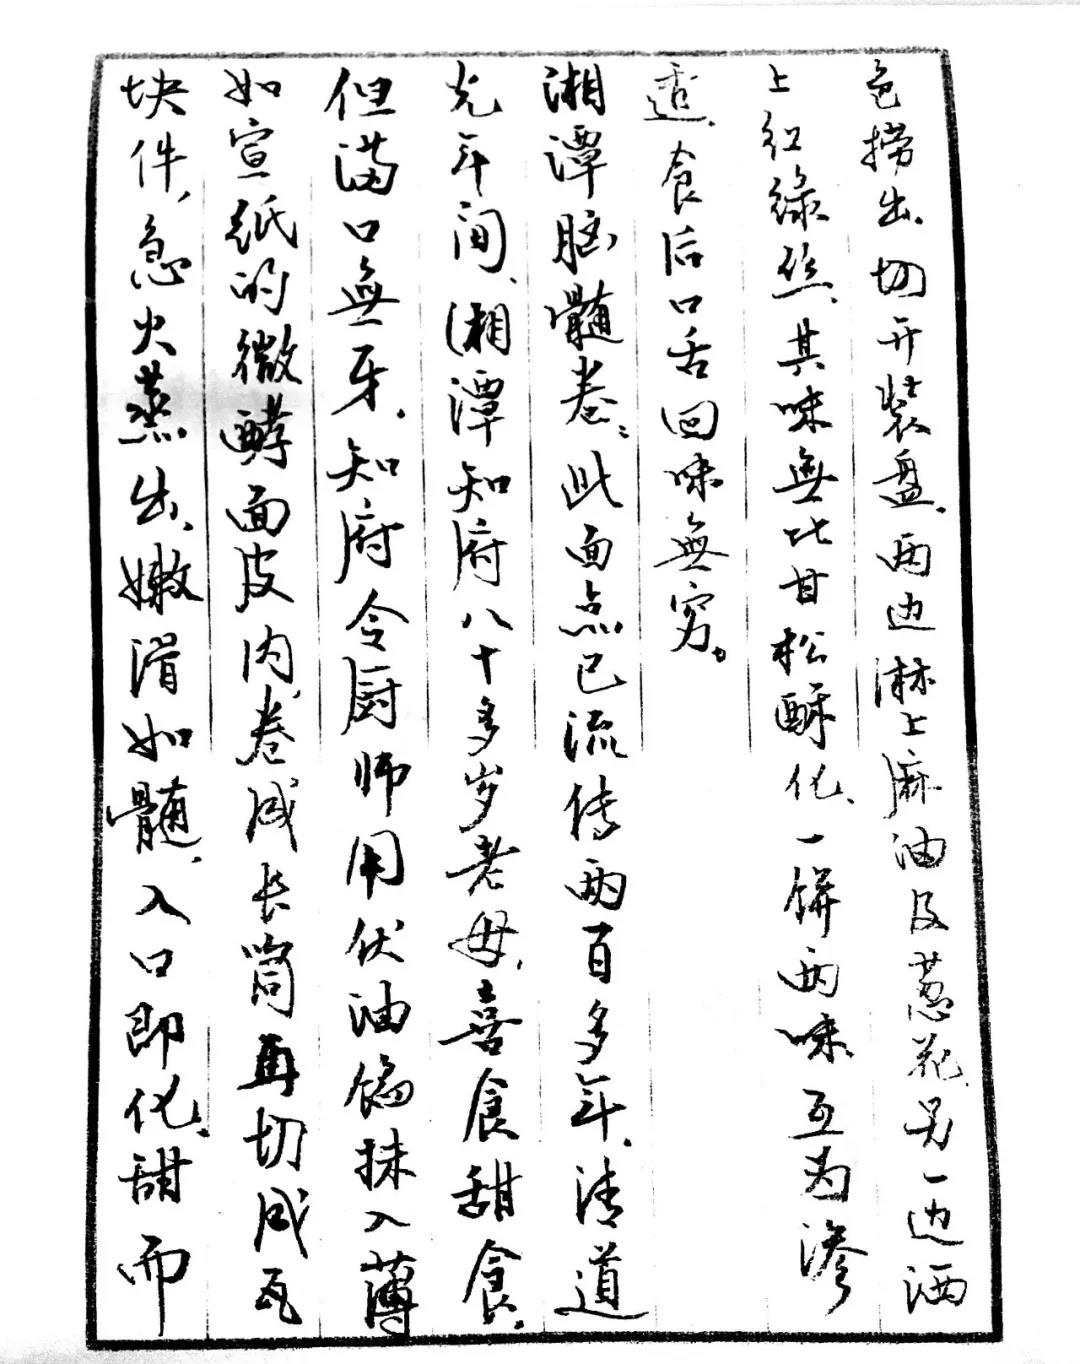 色捞出、切开装盘、两边淋上麻油及葱花、另一边洒
上红绿丝、其味無比甘松酥化、一饼两味、互为渗
透、食后口舌回味無穷。
湘潭脑髓卷：此面点已流传两百多年、清道
光年间、湘潭知府八十多岁老母、喜食甜食、
但满口無牙、知府令厨师用伏油馅抹入薄
如宣纸的微酵面皮内、卷成长筒再切成瓦
块件、急火蒸出、嫩滑如髓、入口即化、甜而